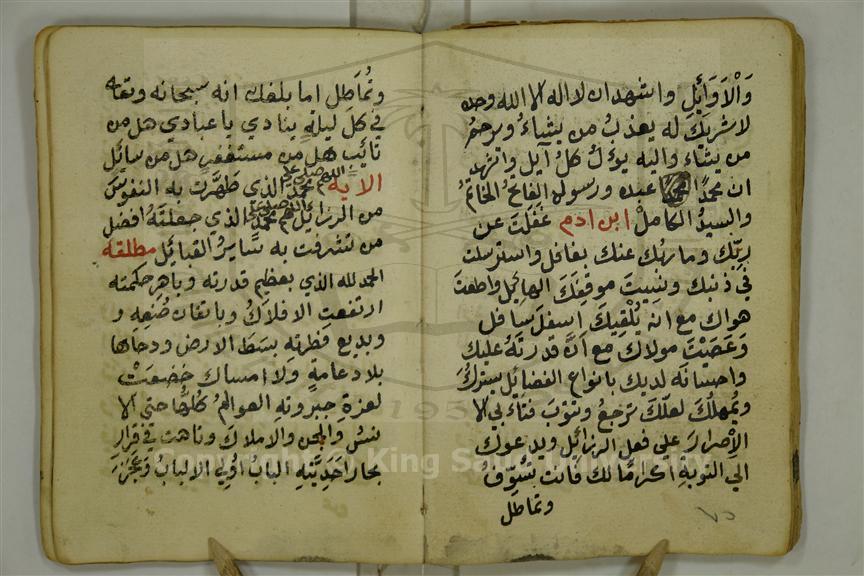 وَالْاَوَآئِلِ واشهد ان لا اله الا الله وحده
لا شريك له يعذب من يشاء ويرحم
من يشاء واليه يؤل كل آيل واشهد
ان محمدًا عبده ورسوله الفاتح الخاتم
والسيد الكامل ابن ادم غفلت عن
ربك وما ربك عنك بغافل واسترسلت
في ذنبك ونسيت موقفك الهائل واطعت
هواك مع انه يلقيك اسفل سافل
وعصيت مولاك مع ان قدرته عليك
واحسانه لديك بانواع الفضائل يسترك
ويمهلك لعلك ترجع وتتوب فتابي الا
الاصرار علي فعل الرزائل ويدعوك
الي التوبة اكراما لك فانت تسوف
وتماطل
وتماطل اما بلغك انه سبحانه وتعا
في كل ليلة ينادي يا عبادي هل من
تائب هل من مستغفر هل من سائل
الايه اللهم صلي علي محمد الذي طهرت به النفوس
من الرزائل اللهم صلي علي محمد الذي جعلته افضل
من تشرفت به سائر القبائل مطلقه
الحمد لله الذي بعظيم قدرته وباهر حكمته
ارتفعت الافلاك وباتقان صنعه و
وبديع فطرته بسط الارض ودحاها
بلا دعامة ولا امساك خضعت
لعزة جبروته العوالم كلها حتي الا
نس والجن والاملاك وتاهت في قرار
بحار احديته الباب اولي الالباب وعجز
Copyright © King Saud University
1957